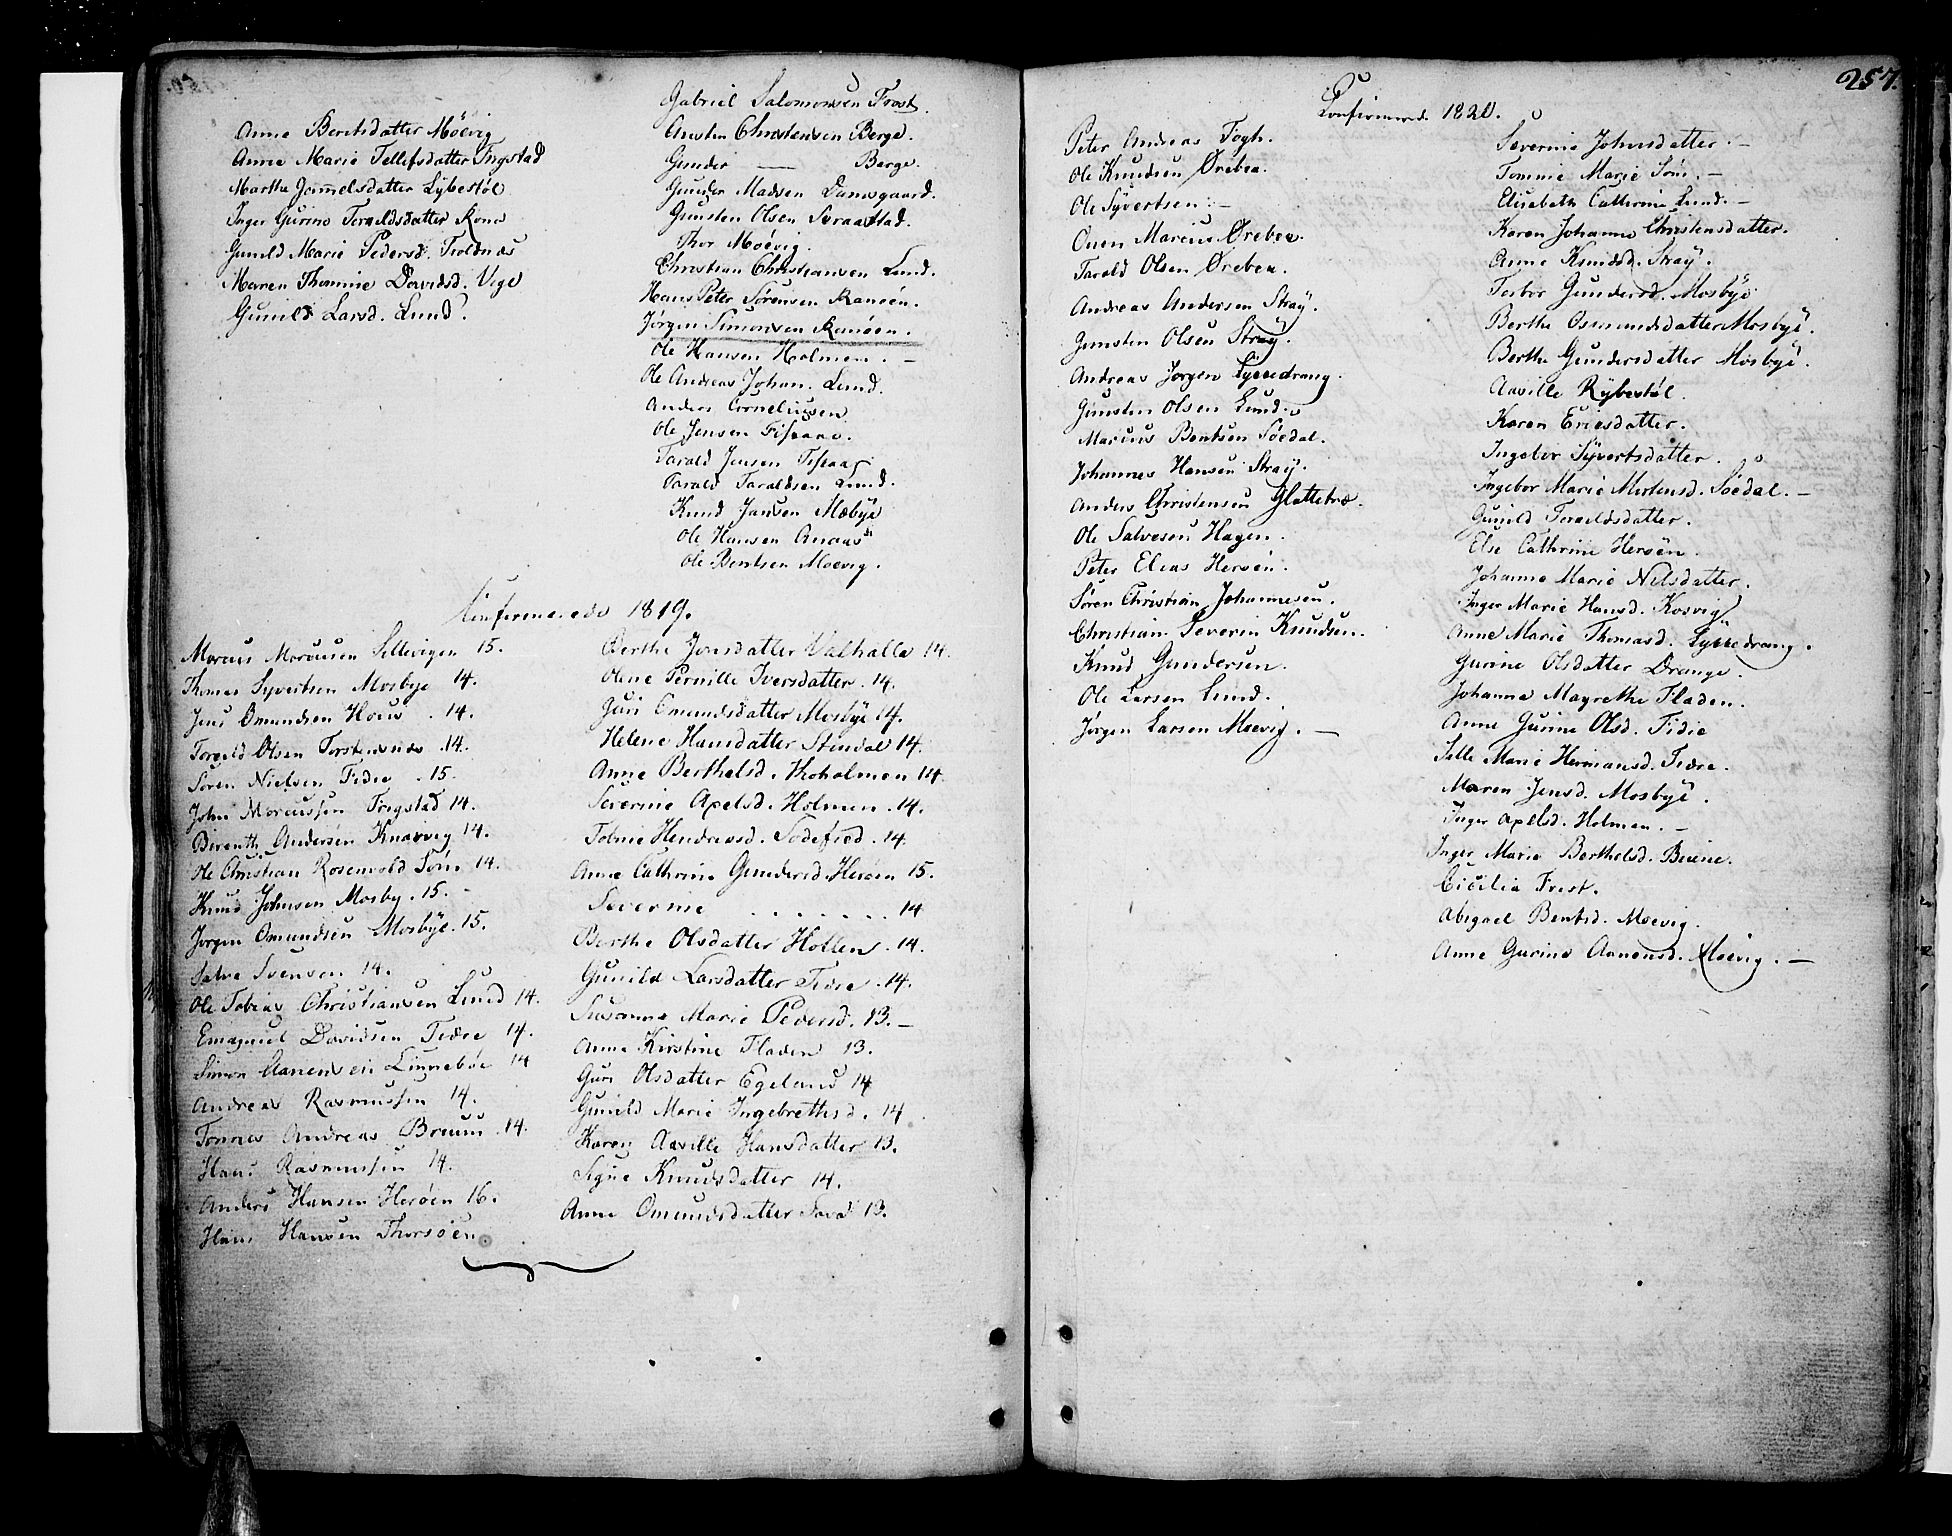 257.
Anne Berntsdatter Möevig
Anne Marie Tellefsdatter Tingstad
Marthe Jammelsdatter Lybestöl
Inger Gurine Taraldsdatter Rona
Gunild Marie Pedersd. Troldnæs
Maren Thomine Davidsd. Vige
Gunild Larsd. Lund.
Gabriel Salomonsen Frost.
Austen Christensen Berge.
Gunder — Berge.
Gunder Madsen Damsgaard.
Gunsten Olsen Straaestad.
Thor Moëvig.
Christian Christiansen Lund.
Hans Peter Sørensen Ranöen.
Jörgen Simonsen Ranöen.
Ole Hansen Holmen. —
Ole Andreas Johan. Lund.
Anders Corneliusen
Ole Jensen
Tarald Jensen
Tarald Taraldsen Lund.
Knud Jansen Mæbye
Ole Hansen
Ole Bentsen Moevig.
Confirmerede 1819.
Marcus Marcusen Sellevigen 15.
Thomas Syvertsen Mosbye 14.
Jens Omundsen Homs . 14.
Torald Olsen Torstensnæs . 14.
Sören Nielsen Tidee . 15.
John Marcussen Tingstad 14.
Berenth Andersen Knarvig 14.
Ole Christian Rosenvold Söm 14.
Knud Johnsen Mosby. 15.
Jörgen Omundsen Mosbye. 15.
Salve Svensen 14.
Ole Tobias Christiansen Lund 14.
Emanuel Davidsen Tidee 14.
Simon Aanensen Linnebøe 14
Andreas Rasmussen 14.
Tönnes Andreas Bruun . 14.
Hans Rasmussen 14.
Anders Hansen Heröen 16.
Hans Hansen Thorsöen.
Berthe Jonsdatter Valhalla 14.
Olene Pernille Iversdatter . 14.
Guri Omundsdatter Mosbye 14.
Helene Hansdatter Stendal 14.
Anne Berthelsd. Koholmen 14.
Severine Axelsd. Holmen . 14.
Tobine Hendrasd. Sodefied . 14.
Anne Cathrine Gundersd. Heröen 15.
Severine . . . . . . . 14
Berthe Olsdatter Hollen . 14.
Gunild Larsdatter Tidee . 14.
Susanne Marie Pedersd. 13. —
Anne Kirstine Fladen 13.
Guri Olsdatter Egeland 14
Gunild Marie Ingebrethsd. 14
Karen Aasille Hansdatter 13.
Signe Knudsdatter 14.
Anne Omundsdatter 13.
Confirmered. 1820.
Peter Andreas Fogh.
Ole Knudsen Ørebea.
Ole Syvertsen: —
Onen Marcius Ørebea.
Tarald Olsen Ørebea.
Andreas Andersen Straÿ.
Gunsten Olsen Straÿ.
Andreas Jörgen Lykkedrang.
Gunsten Olsen Lund.
Marcus Bentsen Söedal.
Johannes Hansen Straÿ.
Anders Christensen Glattetræ.
Ole Salvesen Hagen.
Peter Elias Heröen.
Sören Christian Johannesen.
Christian Severin Knudsen.
Knud Gundersen.
Ole Larsen Lund.
Jörgen Larsen Moevig. —
Severine Johnsdatter. —
Tomine Marie Söm. —
Elisabeth Cathrine Lund. —
Karen Johanne Christensdatter.
Anne Knudsd. Straÿ.
Torbor Gundersd. Mosbye
Berthe Osmundsdatter Mosbye.
Berthe Gundersdatter Mosbye.
Aasille Rybestöl.
Karen Ericsdatter.
Ingebor Syvertsdatter.
Ingebor Marie Mortensd. Söedal. —
Gunild Taraldsdatter.
Else Cathrine Heröen.
Johanne Marie Nilsdatter.
Inger Marie Hansd. Kosvig
Anne Marie Thomasd. Lykkedrang.
Gurine Olsdatter Drange.
Johanna Magrethe Fladen.
Anne Gurine Olsd. Tidie
Sille Marie Hermansd. Tidee.
Maren Jensd. Mosbye.
Inger Axelsd. Holmen. —
Inger Marie Berthelsd. Buene.
Cicilia Frost.
Abigael Bentsd. Moevig.
Anne Gurine Aanensd. Moevig. —